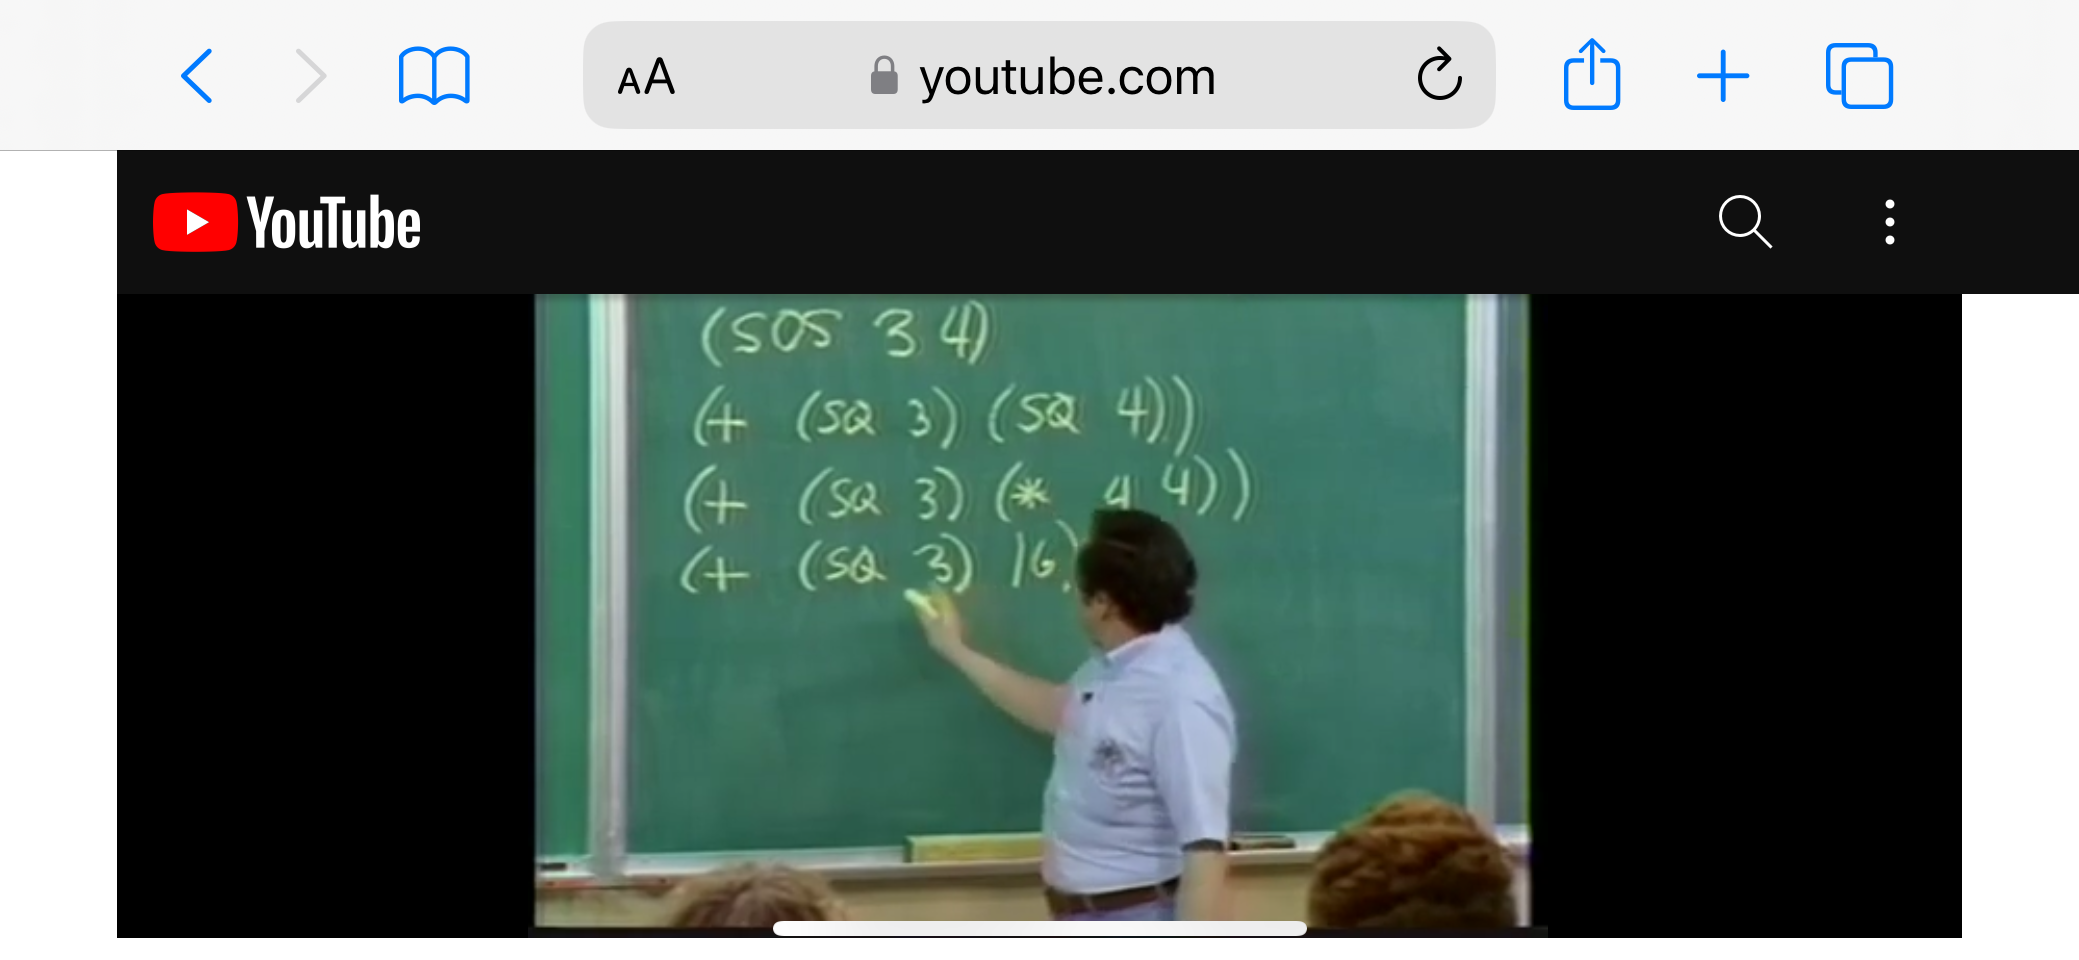 AA youtube.com
YouTube
(SOS 3 4)
(+ (SQ 3) (SQ 4))
(+ (SQ 3) (* 4 4))
(+ (SQ 3) 16)